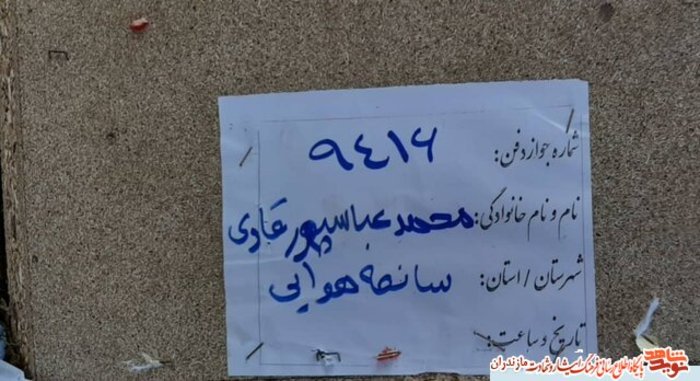 شماره جواز دفن: ۹۴۱۶
نام و نام خانوادگی: محمد عباسپور عادی
شهرستان / استان: سانحه هوایی
تاریخ و ساعت:
نوید شاهد
پایگاه اطلاع رسانی فرهنگ ایثار و شهادت مازندران